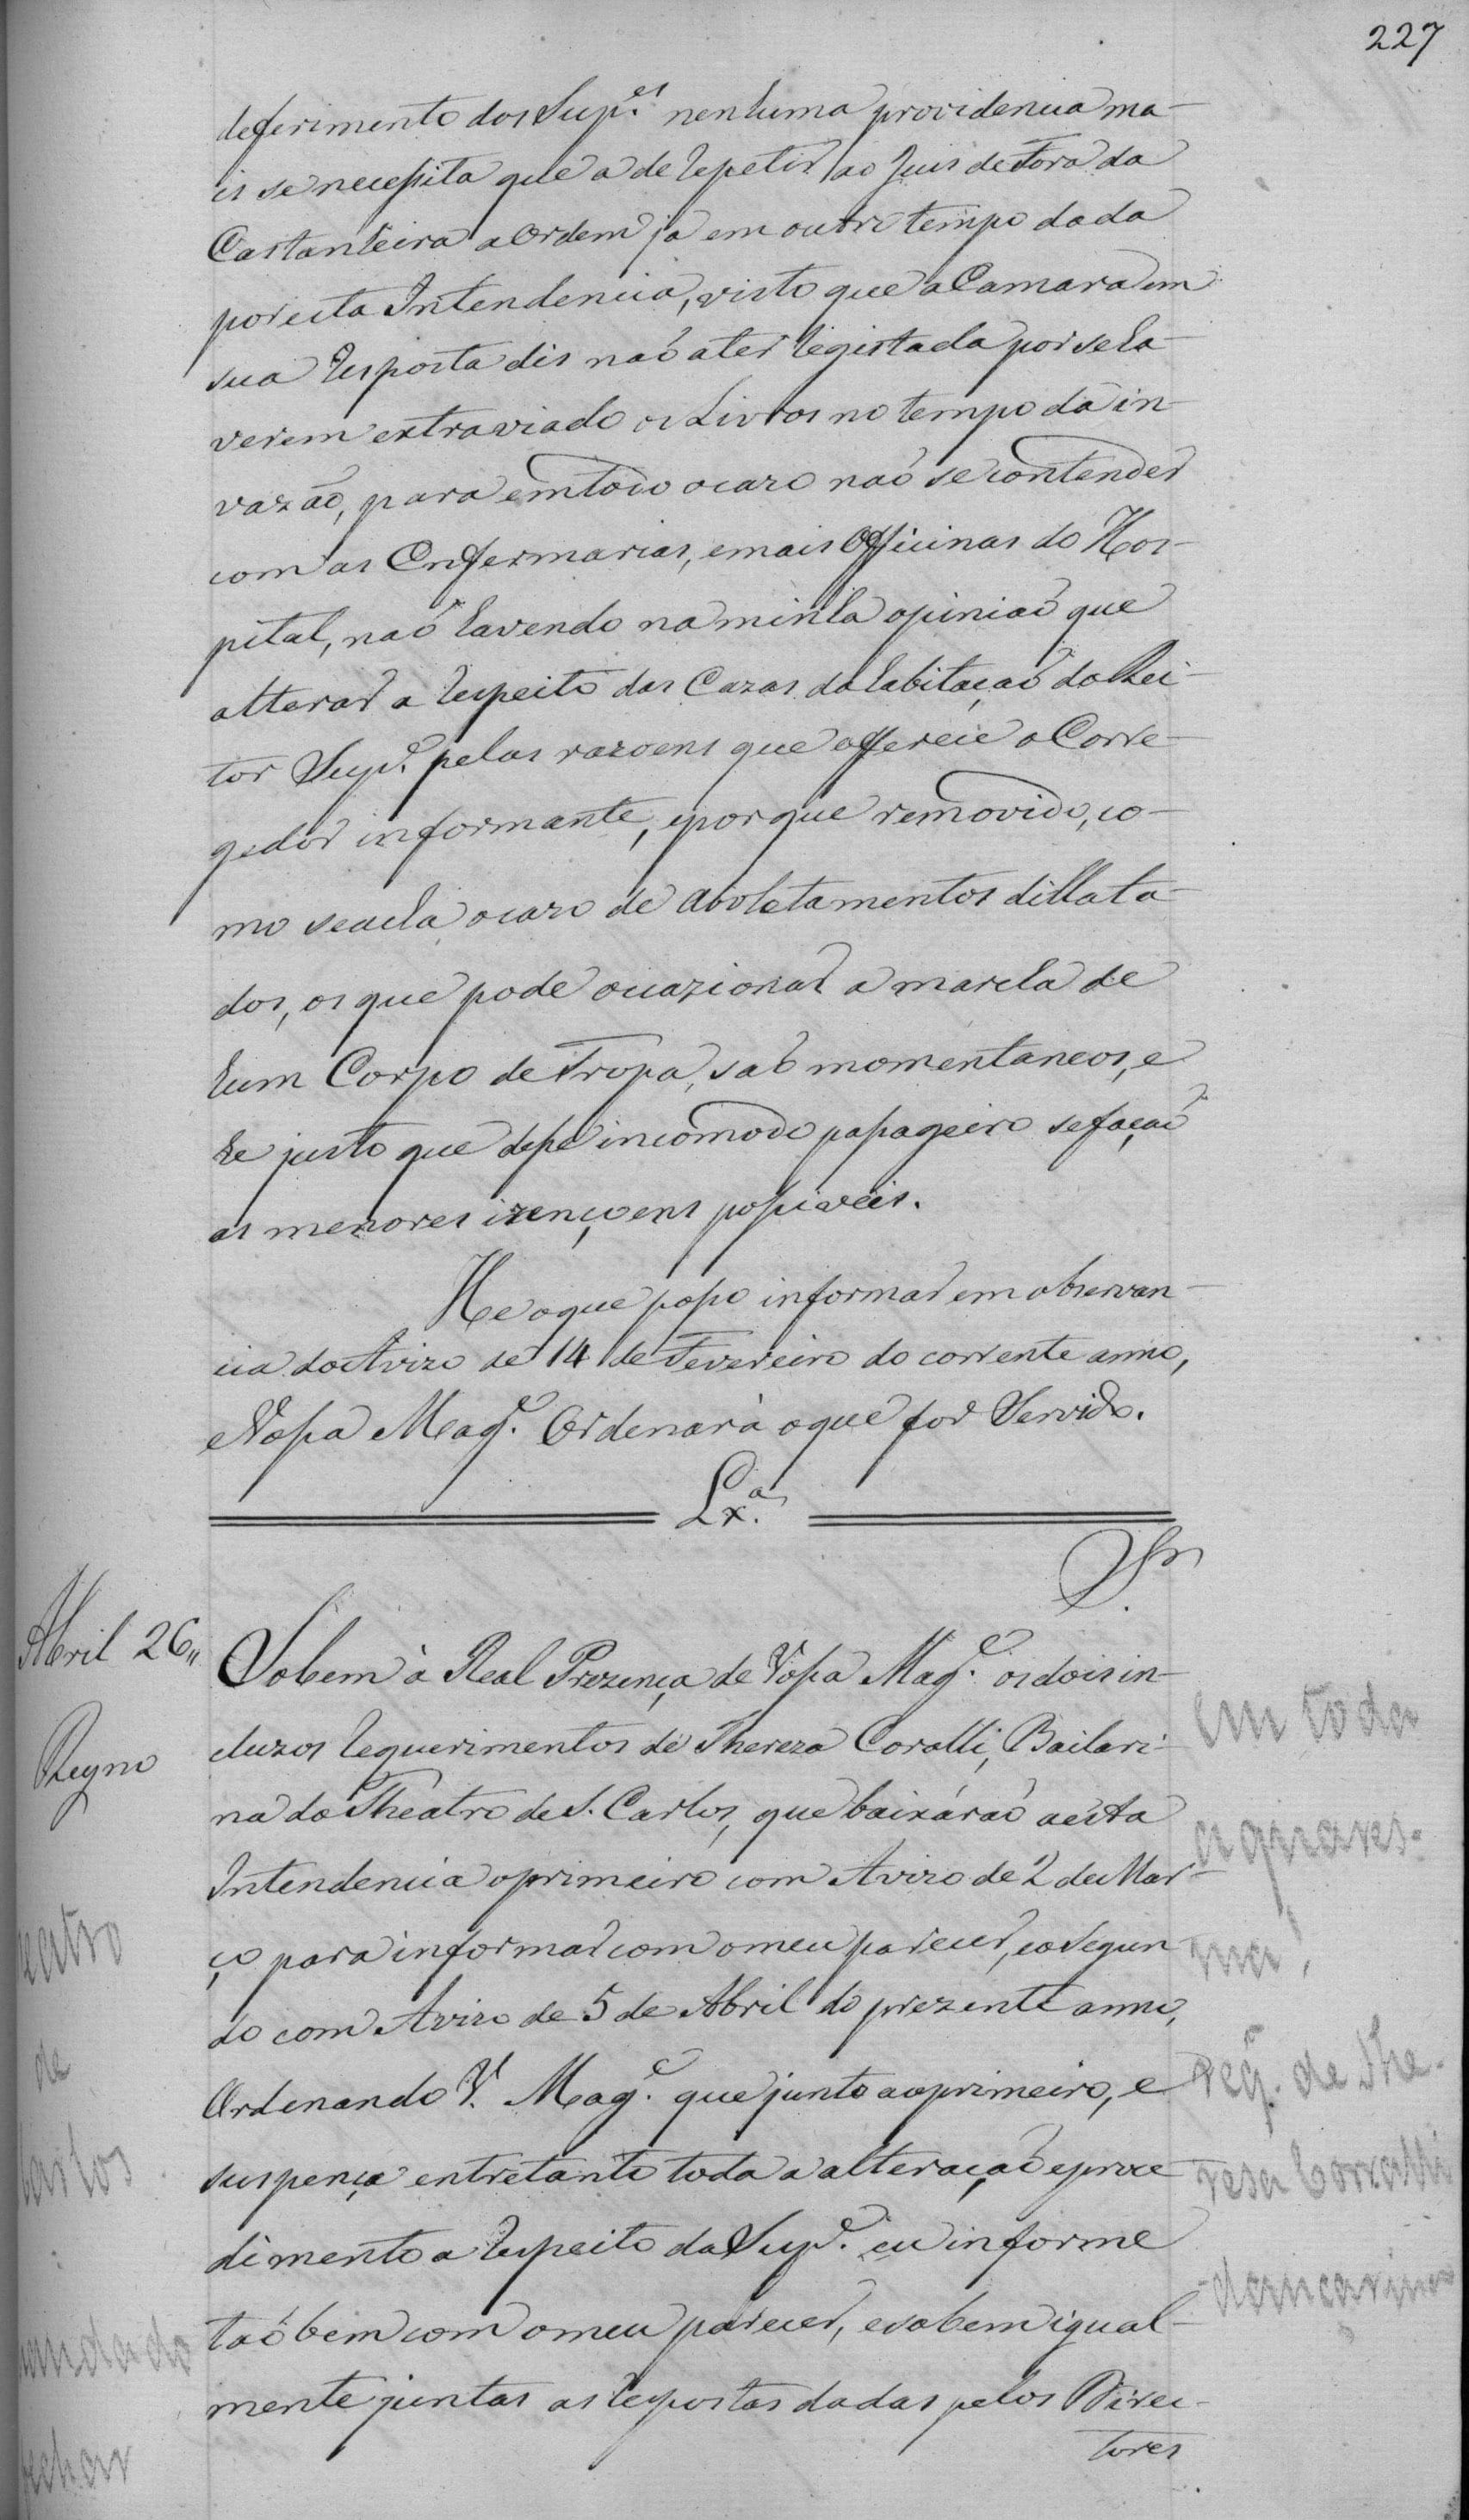 227
deferimento dos Sup.es nenhuma providencia ma-
is se necessita que a de repetir ao Juis de Fora da
Castanheira a Ordem ja em outro tempo dada
por esta Intendencia, visto que a Camara em
sua resposta dis naõ a ter registada por se ha-
verem extraviado os Livros no tempo da in-
vazaõ, para em todo o cazo naõ se contender
com as Enfermarias, e mais Officinas do Hos-
pital, naõ havendo na minha opiniaõ que
alterar a respeito das Cazas da habitaçaõ do Rei-
tor Sup.e pelas razoens que offerece o Corre-
gedor informante, e porque removido, co-
mo se acha o cazo de aboletamentos dillata-
dos, os que pode occazionar a marcha de
hum Corpo de Tropa, saõ momentaneos, e
he justo que desse incomodo passageiro se façaõ
as menores izençoens possiveis.
He o que posso informar em observan-
cia do Avizo de 14 de Fevereiro do corrente anno,
e Vossa Mag.e Ordenarà o que for Servido.
Lx.a
Sr.
Abril 26
Reyno
Sobem à Real Prezença de Vossa Mag.e os dois in-
cluzos requerimentos de Thereza Coralli, Bailari-
na do Theatro de S. Carlos, que baixáraõ a esta
Intendencia o primeiro com Avizo de 2 de Mar-
ço para informar com o meu parecer, e o segun
do com Avizo de 5 de Abril do prezente anno,
Ordenando V. Mag.e que junto ao primeiro, e
suspença entretanto toda a alteraçaõ e proce
dimento a respeito da Sup.e eu informe
taõbem com o meu parecer, e sobem igual-
mente juntas as respostas dadas pelos Direc-
tores
em toda
a quares-
ma!
req. de The-
resa Corralli
dançarina
eatro
de
Carlos
mandado
fechar